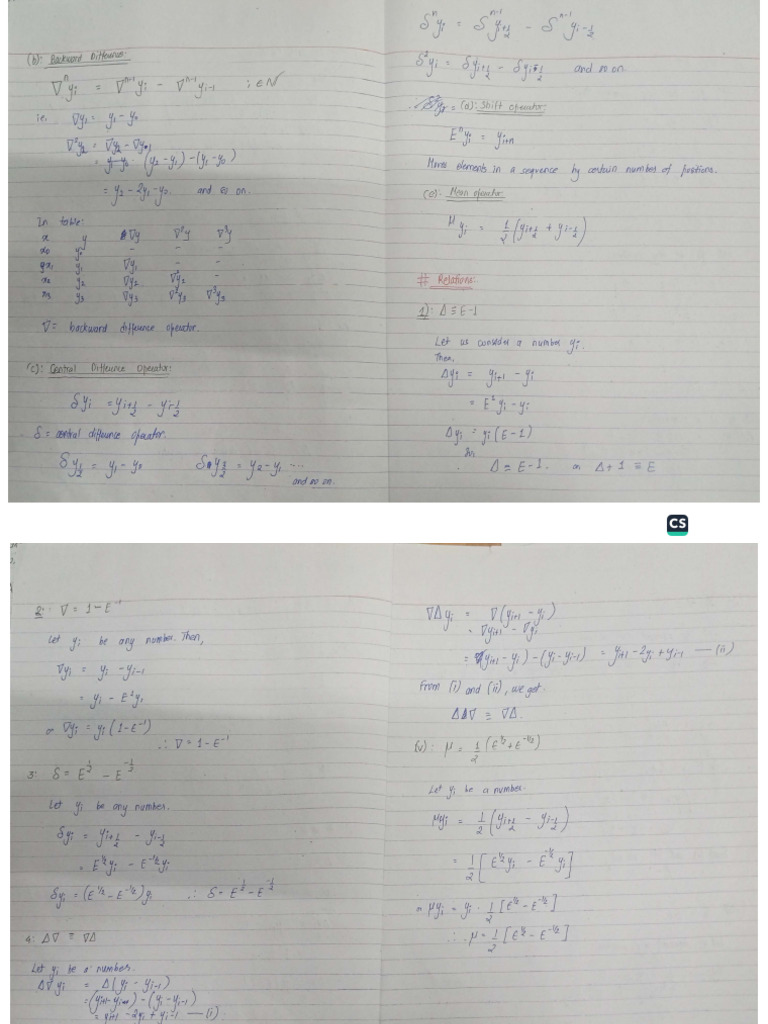 (b): Backward Difference:
∇ⁿyᵢ = ∇ⁿ⁻¹yᵢ − ∇ⁿ⁻¹yᵢ₋₁ ; ∈N
i.e. ∇y₁ = y₁ − y₀
∇²y₂ = ∇y₂ − ∇y₁
= (y₂−y₁)−(y₁−y₀)
= y₂ − 2y₁ − y₀ and so on.
In table:
x y ∇y ∇²y ∇³y
x₀ y₀ - - -
x₁ y₁ ∇y₁ - -
x₂ y₂ ∇y₂ ∇²y₂ -
x₃ y₃ ∇y₃ ∇²y₃ ∇³y₃
∇ = backward difference operator.
(c): Central Difference Operator:
δyᵢ = y_{i+1/2} − y_{i-1/2}
δ = central difference operator.
δy_{1/2} = y₁ − y₀ δy_{3/2} = y₂ − y₁ ....
and so on.
δⁿyᵢ = δⁿ⁻¹y_{i+1/2} − δⁿ⁻¹y_{i-1/2}
δ²yᵢ = δy_{i+1/2} − δy_{i-1/2} and so on.
(d): Shift Operator:
Eⁿyᵢ = yᵢ₊ₙ
Moves elements in a sequence by certain number of positions.
(e): Mean operator
μyᵢ = 1/2 (y_{i+1/2} + y_{i-1/2})
# Relations:
1): Δ ≡ E-1
Let us consider a number yᵢ.
Then,
Δyᵢ = yᵢ₊₁ − yᵢ
= E¹yᵢ − yᵢ
Δyᵢ = yᵢ(E−1)
Δ ≡ E−1. or Δ+1 ≡ E
CS
2: ∇ = 1−E⁻¹
Let yᵢ be any number. Then,
∇yᵢ = yᵢ − yᵢ₋₁
= yᵢ − E¹yᵢ
or ∇yᵢ = yᵢ(1−E⁻¹)
∴ ∇ = 1−E⁻¹
3: δ = E^{1/2} − E^{-1/2}
Let yᵢ be any number.
δyᵢ = y_{i+1/2} − y_{i-1/2}
= E^{1/2}yᵢ − E^{-1/2}yᵢ
δyᵢ = (E^{1/2} − E^{-1/2})yᵢ ∴ δ = E^{1/2} − E^{-1/2}
4: Δ∇ ≡ ∇Δ
Let yᵢ be a number.
Δ∇yᵢ = Δ(yᵢ − yᵢ₋₁)
= (yᵢ₊₁−yᵢ) − (yᵢ−yᵢ₋₁)
= yᵢ₊₁ − 2yᵢ + yᵢ₋₁ — (i).
∇Δyᵢ = ∇(yᵢ₊₁ − yᵢ)
= ∇yᵢ₊₁ − ∇yᵢ
= (yᵢ₊₁ − yᵢ) − (yᵢ − yᵢ₋₁) = yᵢ₊₁ − 2yᵢ + yᵢ₋₁ — (ii)
From (i) and (ii), we get.
Δ∇ ≡ ∇Δ.
(v): μ = 1/2 (E^{1/2} + E^{-1/2})
Let yᵢ be a number.
μyᵢ = 1/2 (y_{i+1/2} − y_{i-1/2})
= 1/2 [E^{1/2}yᵢ − E^{-1/2}yᵢ]
or μyᵢ = yᵢ · 1/2 [E^{1/2} − E^{-1/2}]
∴ μ = 1/2 [E^{1/2} − E^{-1/2}]